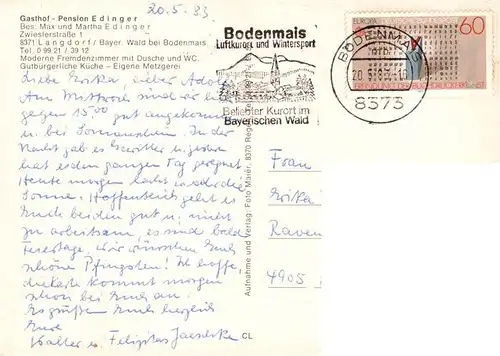 20.5.83
Gasthof - Pension Edinger
Bes: Max und Martha Edinger
Zwieslerstraße 1
8371 Langdorf/Bayer. Wald bei Bodenmais
Tel. 0 99 21 / 39 12
Moderne Fremdenzimmer mit Dusche und WC.
Gutbürgerliche Küche – Eigene Metzgerei
Liebe Erika, lieber Adolf
Am Mittwoch sind wir
gegen 15.00 gut angekommen
u. bei Sonnenschein. In der
Nacht gab es Gewitter u. gestern
hat es den ganzen Tag geregnet
Heute morgen lacht wieder die
Sonne. Hoffentlich geht es
Euch beiden gut u. nicht
zu arbeitsam, es sind bald
Feiertage. Wir wünschen Euch
schöne Pfingsten! Ich hoffe
die Karte kommt morgen
schon bei Euch an.
Es grüßen Euch herzlich
Eure
Walter u. Felizitas
CL
Aufnahme und Verlag: Foto Maier, 8370 Regen
Bodenmais
Luftkurort und Wintersport
Beliebter Kurort im
Bayerischen Wald
BODENMAIS
20.5.83
8373
EUROPA
60
Frau
Erika
4905